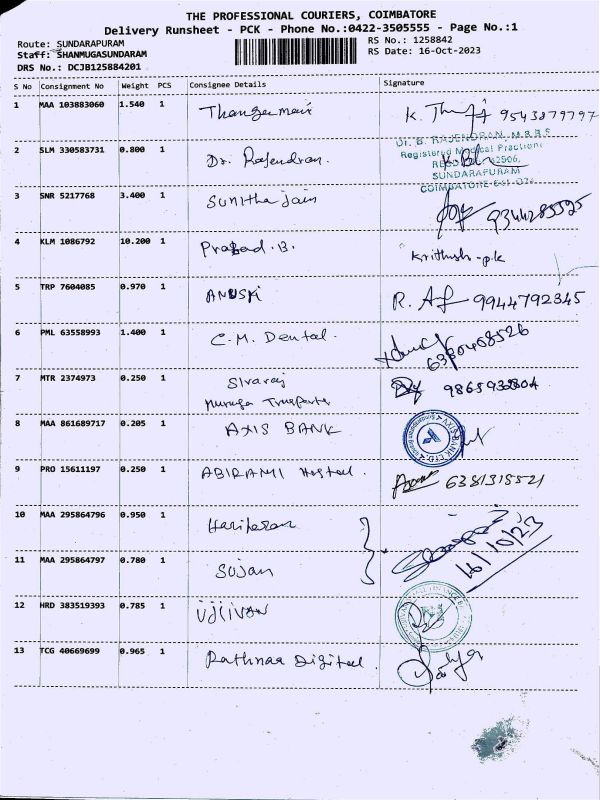 THE PROFESSIONAL COURIERS, COIMBATORE
Delivery Runsheet - PCK - Phone No.:0422-3505555 - Page No.:1
Route: SUNDARAPURAM RS No.: 1258842
Staff: SHANMUGASUNDARAM RS Date: 16-Oct-2023
DRS No.: DCJB125884201
S No Consignment No Weight PCS Consignee Details Signature
1 MAA 103883060 1.540 1 9543879797
Dr. B. RAJENDRAN, M.B.B.S
2 SLM 330583731 0.800 1 Dr. Rajendran. Registered Medical Practitioner
SUNDARAPURAM
3 SNR 5217768 3.400 1 Sunitha Jain 9344285595
4 KLM 1086792 10.200 1 Prasad.B.
5 TRP 7604085 0.970 1 ANUSKI 9944792345
6 PML 63558993 1.400 1 C.M. Dental. 6380408526
7 MTR 2374973 0.250 1 Sivaraj
8 MAA 861689717 0.205 1 AXIS BANK AXIS BANK LTD
9 PRO 15611197 0.250 1 ABIRAMI Hostel. 6381318521
10 MAA 295864796 0.950 1 Hariharan 16/10/23
11 MAA 295864797 0.780 1 Sujan
12 HRD 383519393 0.785 1 Ujjivan
13 TCG 40669699 0.965 1 Rathnaa Digital.